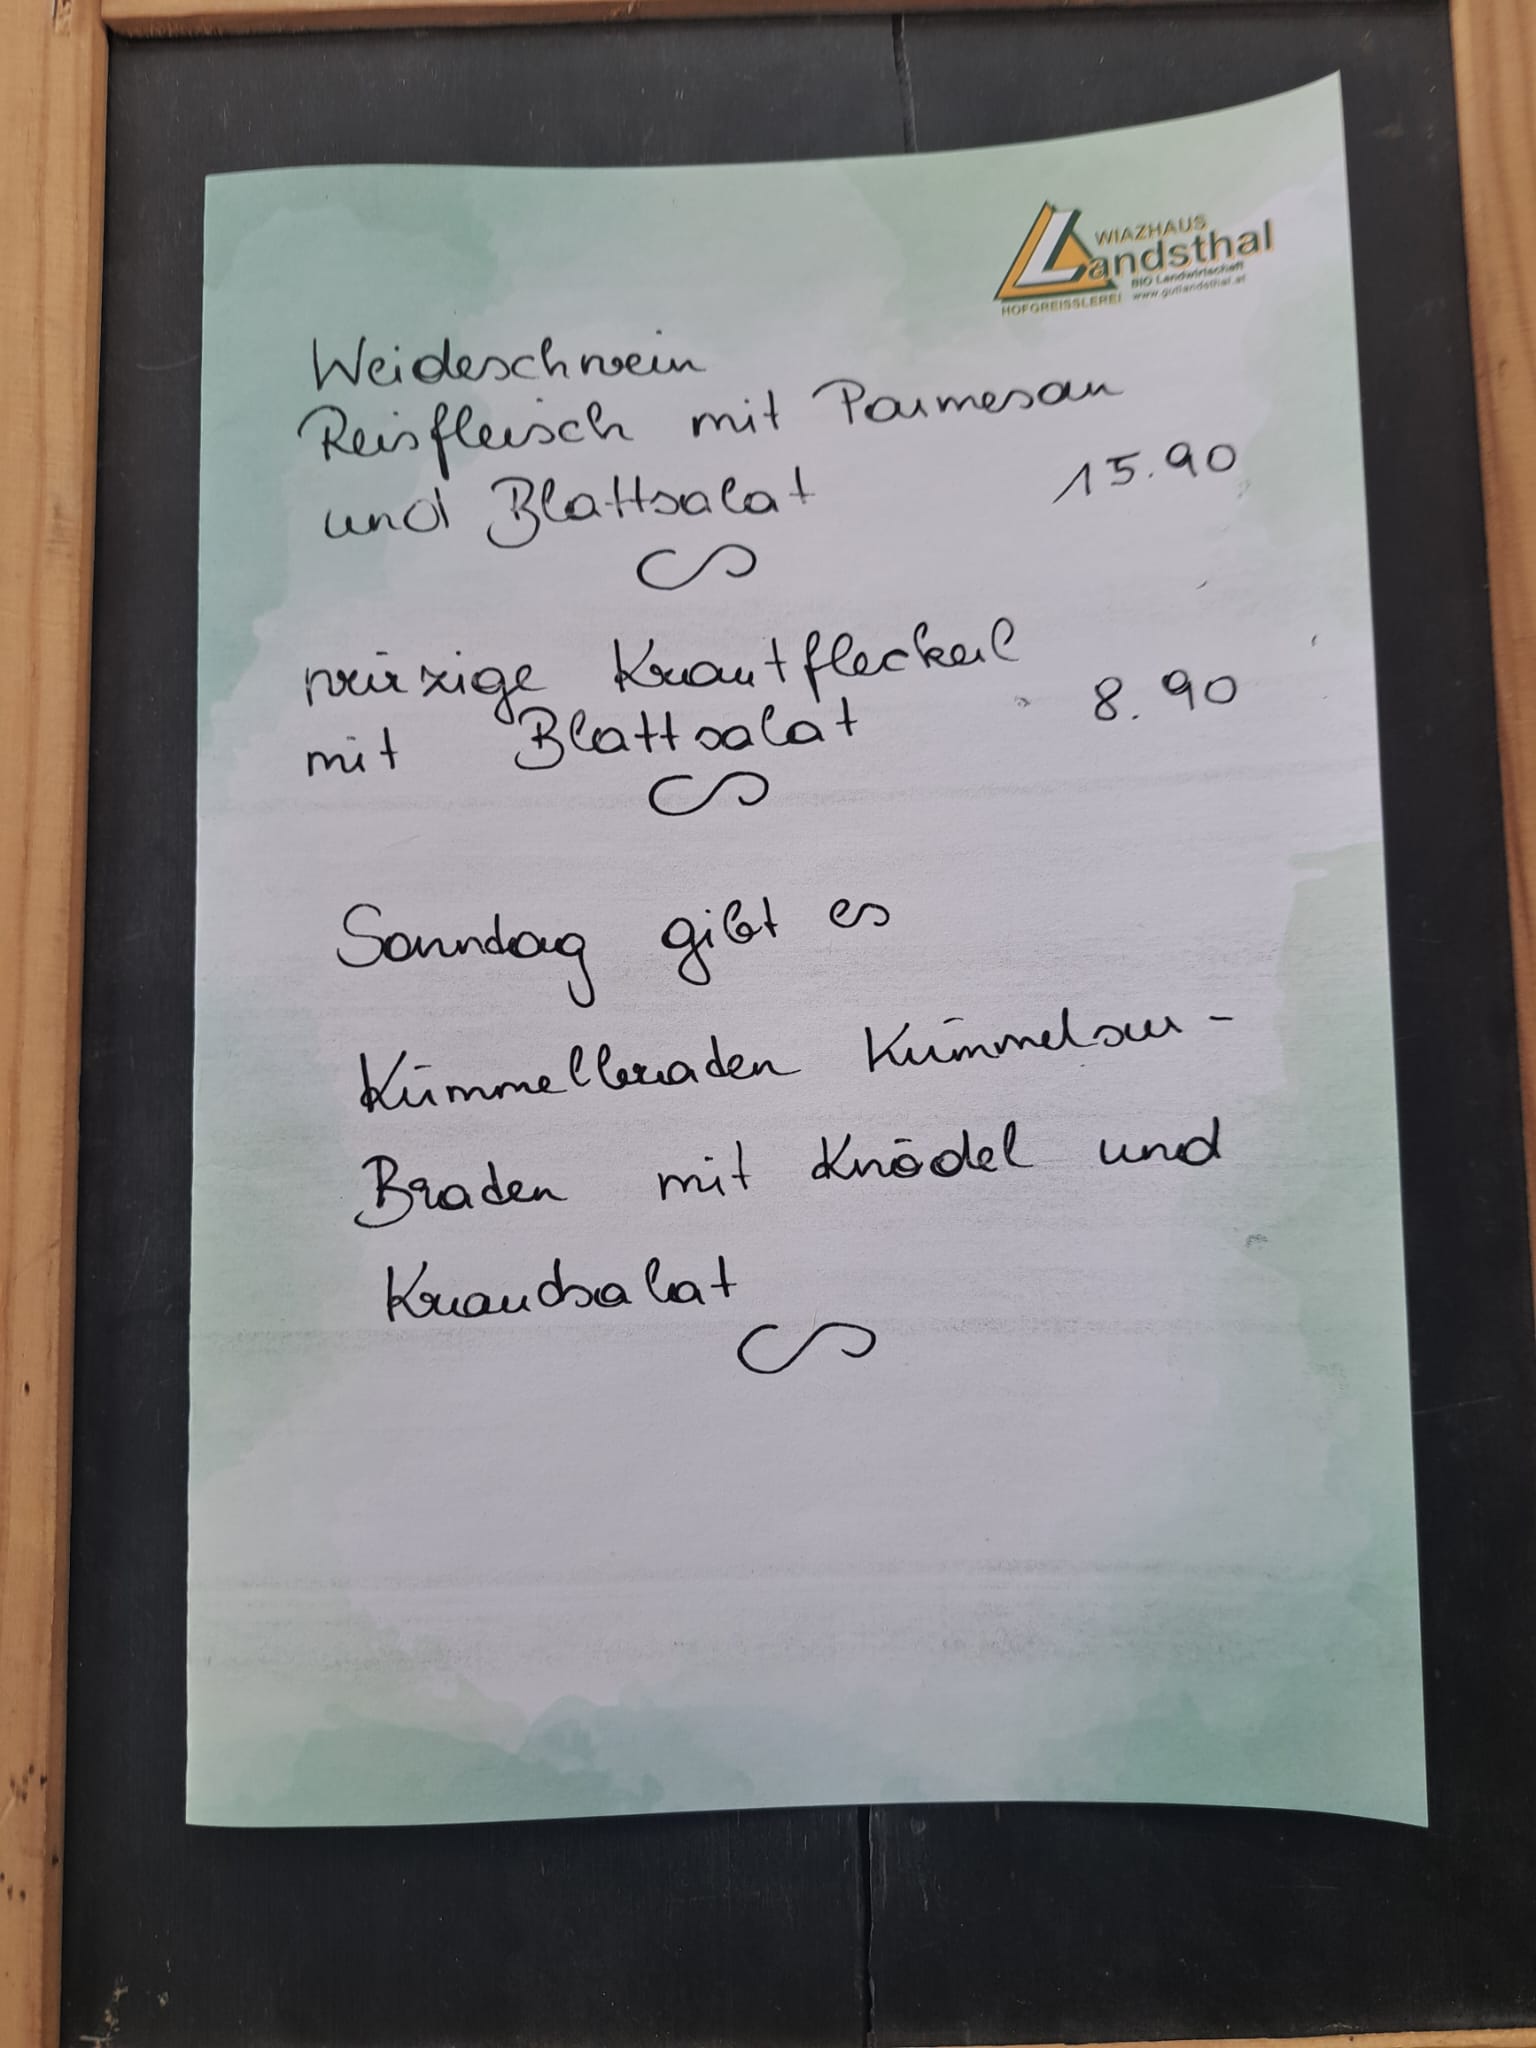 WIAZHAUS
Landsthal
BIO Landwirtschaft
HOFGREISSLEREI www.gutlandsthal.at
Weideschwein
Reisfleisch mit Parmesan
und Blattsalat 15.90
würzige Krautfleckerl
mit Blattsalat 8.90
Sonndag gibt es
Kümmelbraden Kümmelsur-
Braden mit Knödel und
Kraudsalat